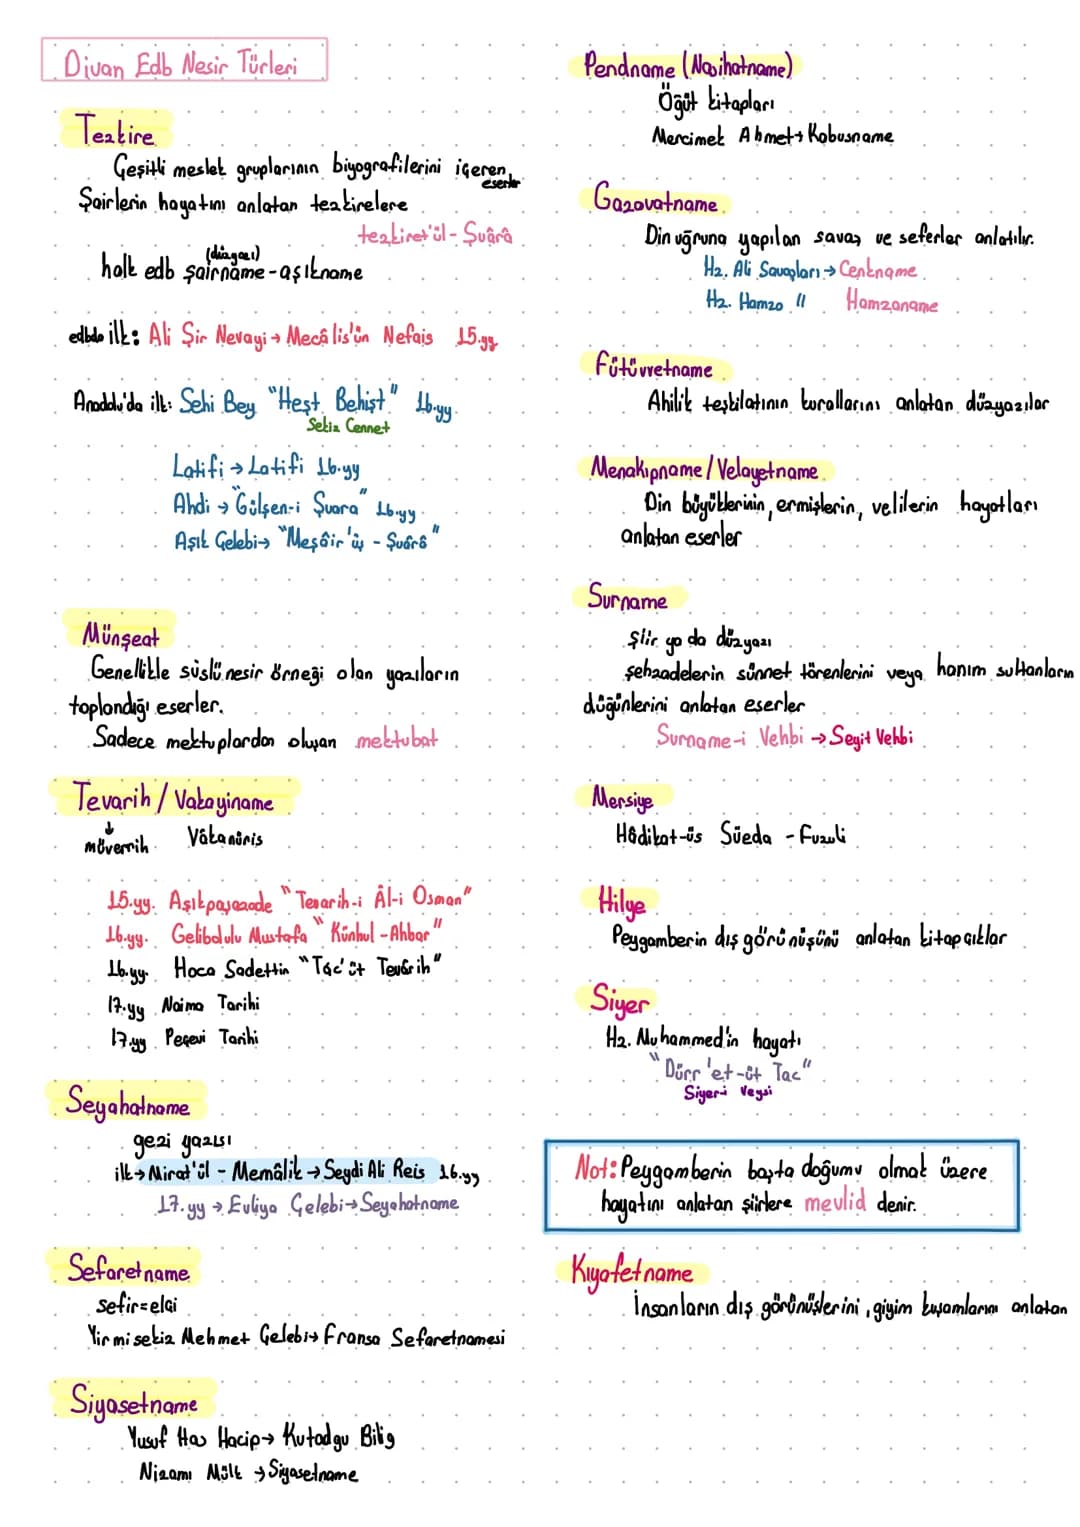 Divan Edb Nesir Türleri
Tezkire
Çeşitli meslek gruplarının biyografilerini içeren
eserler
Şairlerin hayatını anlatan tezkirelere
tezkiret'ül - Şuârâ
(düzyazı)
halk edb şairname - aşıkname
edbda ilk: Ali Şir Nevayi → Mecâlis'ün Nefais 15.yy
Anadolu'da ilk: Sehi Bey "Heşt Behişt" 16.yy
Sekiz Cennet
Latifi → Latifi 16.yy
Ahdi → "Gülşen-i Şuara" 16.yy
Aşık Çelebi → "Meşâir'üş - Şuârâ"
Münşeat
Genellikle süslü nesir örneği olan yazıların
toplandığı eserler.
Sadece mektuplardan oluşan mektubat
Tevarih / Vakayiname
↓
müverrih Vâkanüris
15.yy. Aşıkpaşazade "Tevarih-i Âl-i Osman"
16.yy. Gelibolulu Mustafa "Künhul - Ahbar"
16.yy. Hoca Sadettin "Tâc'üt Tevârih"
17.yy Naima Tarihi
17.yy Peçevi Tarihi
Seyahatname
gezi yazısı
ilk → Mirat'ül - Memâlik → Seydi Ali Reis 16.yy
17.yy → Evliya Çelebi → Seyahatname
Sefaretname
sefir=elçi
Yirmisekiz Mehmet Çelebi → Fransa Sefaretnamesi
Siyasetname
Yusuf Has Hacip → Kutadgu Bilig
Nizamı Mülk → Siyasetname
Pendname (Nasihatname)
Öğüt kitapları
Mercimek Ahmet → Kabusname
Gazavatname
Din uğruna yapılan savaş ve seferler anlatılır.
Hz. Ali Savaşları → Cenkname
Hz. Hamza " Hamzaname
Fütüvvetname
Ahilik teşkilatının kurallarını anlatan düzyazılar
Menakıpname / Velayetname
Din büyüklerinin, ermişlerin, velilerin hayatları
anlatan eserler
Surname
şiir ya da düzyazı
şehzadelerin sünnet törenlerini veya hanım sultanların
düğünlerini anlatan eserler
Surname-i Vehbi → Seyit Vehbi
Mersiye
Hâdikat-üs Süeda - Fuzuli
Hilye
Peygamberin dış görünüşünü anlatan kitapçıklar
Siyer
Hz. Muhammed'in hayatı
"Dürr'et-üt Tac"
Siyer-i Veysi
Not: Peygamberin başta doğumu olmak üzere
hayatını anlatan şiirlere mevlid denir.
Kıyafetname
İnsanların dış görünüşlerini, giyim kuşamlarını anlatan